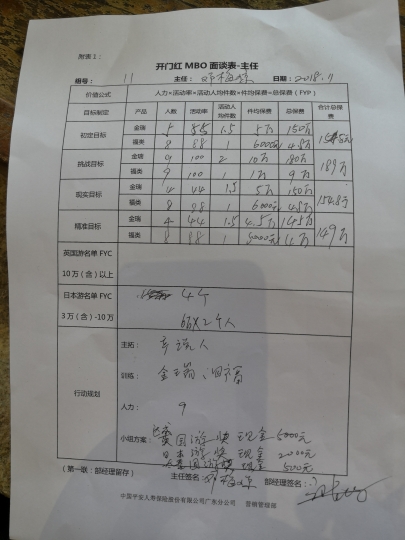 附表1：
开门红 MBO 面谈表-主任
组号： 11 主任： 日期：2018.7
价值公式 人力×活动率×活动人均件数×件均保费=总保费（FYP）
目标制定 产品 人数 活动率 活动人均件数 件均保费 总保费 合计总保费
初定目标 金瑞 1.5 5万 150万
福类 8 88 1 6000元 4.8万
挑战目标 金瑞 9 100 2 10万 180万 189万
福类 9 100 1 1万 9万
现实目标 金瑞 4 44 1.5 5万 150万 154.8万
福类 8 88 1 6000元 4.8万
精准目标 金瑞 4 44 1.5 4.5万 145万 149万
福类 8 88 1 5000元
英国游名单 FYC
10 万（含）以上
日本游名单 FYC 4个
3 万（含）-10万 2个人
行动规划
主拓：
训练： 金瑞
人力： 9
小组方案： 英国游奖 现金 5000元
日本游奖 现金 2000元
现金 500元
（第一联：部经理留存） 主任签名： 部经理签名：
中国平安人寿保险股份有限公司广东分公司 营销管理部